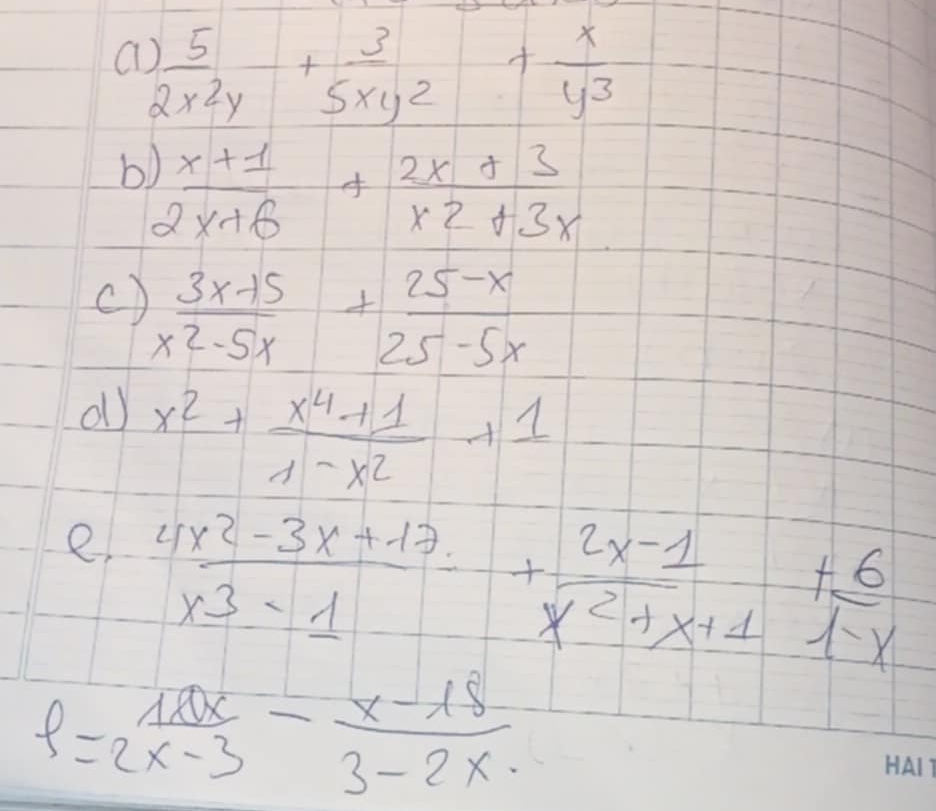 a) 5/2x2y + 3/5xy2 + x/y3
b) x+1/2x+6 + 2x+3/x2+3x
c) 3x+5/x2-5x + 25-x/25-5x
d) x2 + x4+1/1-x2 + 1
e. 4x2-3x+17/x3-1 + 2x-1/x2+x+1 + 6/1-x
f= /2x-3 - x-18/3-2x.
HAI